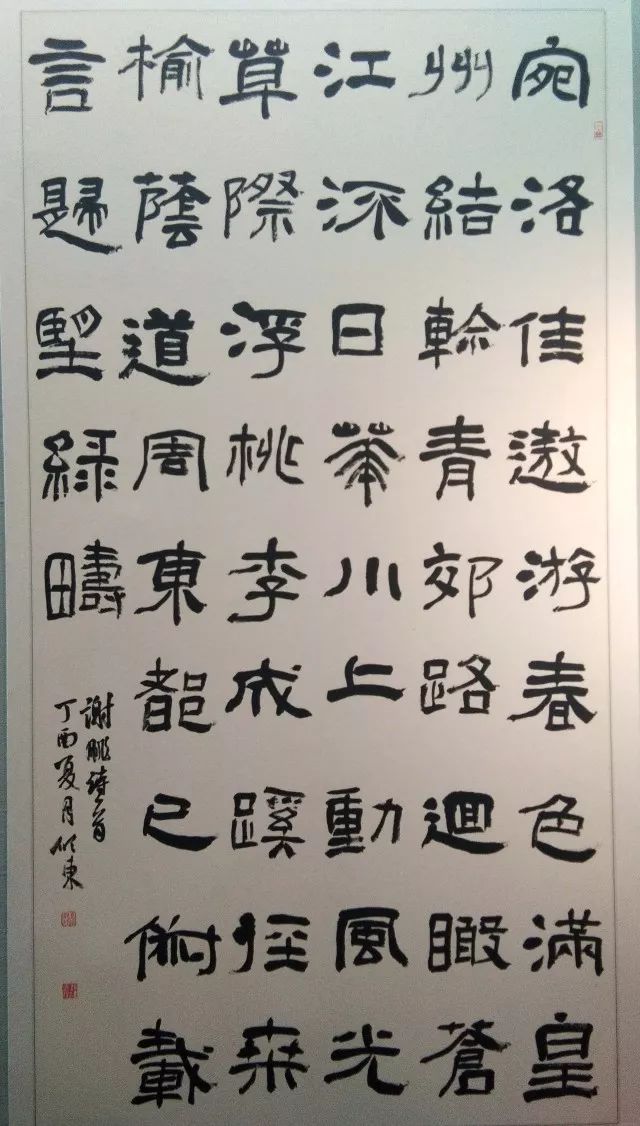 宛洛佳遨游春色滿皇
州結軫青郊路迴瞰蒼
江流日華川上動風光
草際浮桃李成蹊徑桒
榆蔭道周東都已俶載
言歸望綠疇
謝朓詩一首
丁酉夏月東